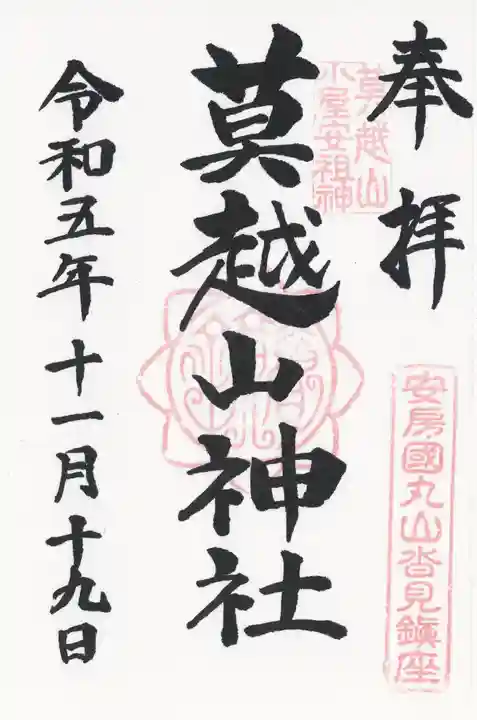 奉拝
莫越山
小屋安祖神
安房國丸山沓見鎮座
莫越山神社
令和五年十一月十九日